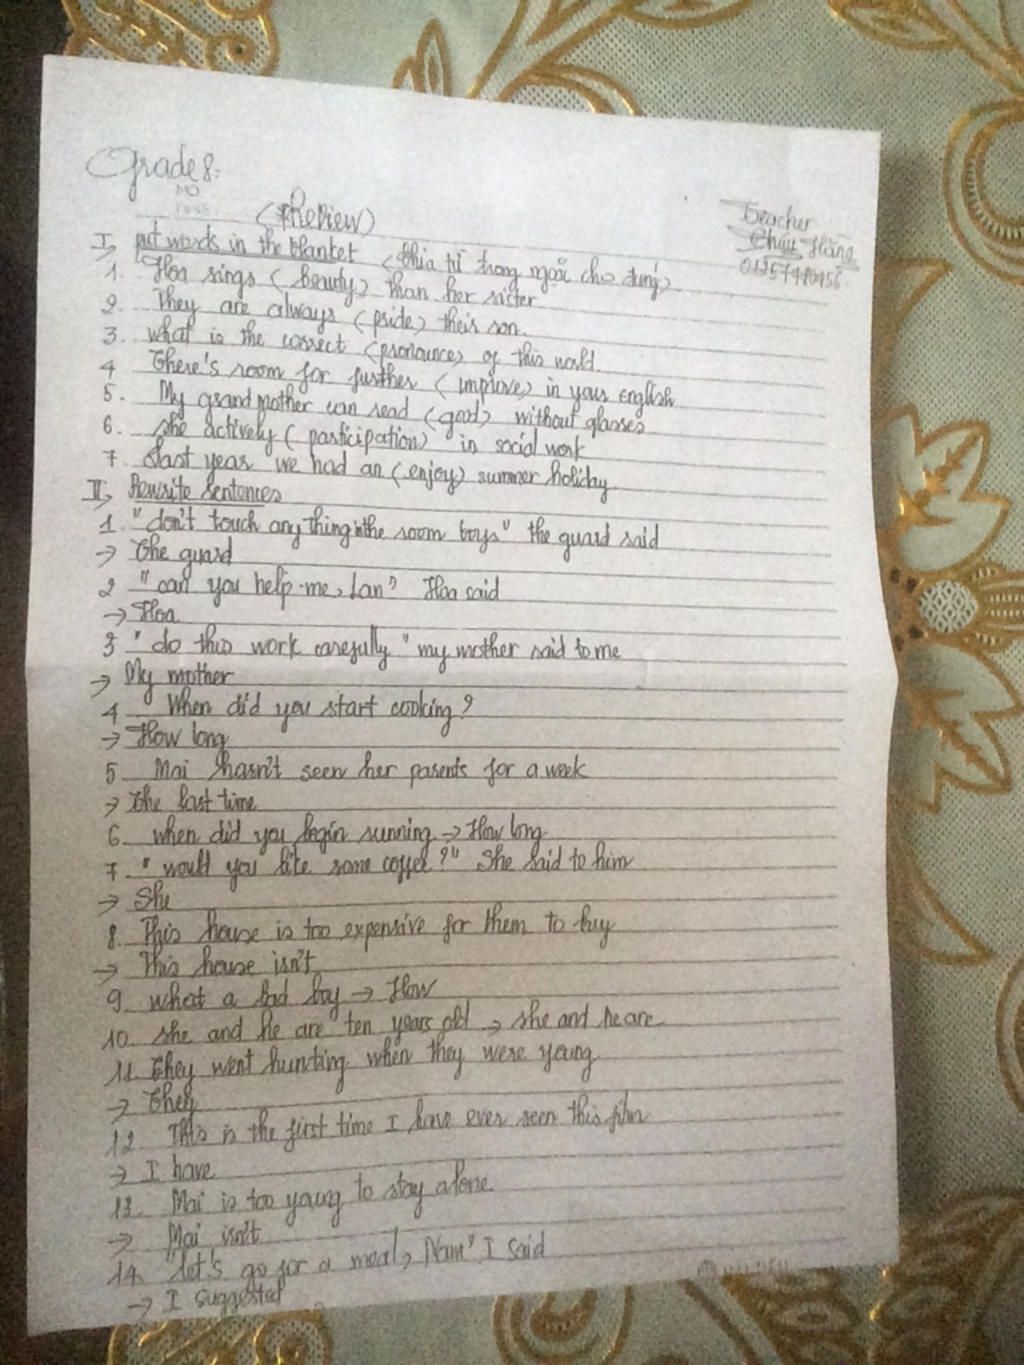 Grade 8:
(Review)
Teacher
Châu Hằng
I, put words in the blanket (chia từ trong ngoặc cho đúng)
1. Hoa sings (beauty) than her sister
2. They are always (pride) their son.
3. what is the correct (pronounce) of this world.
4 There's room for further (improve) in your english
5. My grandmother can read (good) without glasses
6. she actively (participation) in social work
7. Last year we had an (enjoy) summer holiday.
II, Rewrite sentences
1. "don't touch anything in the room boys" the guard said
→ The guard
2 "can you help me, Lan" Hoa said
→ Hoa
3 "do this work carefully" my mother said to me
→ My mother
4 When did you start cooking?
→ How long
5 Mai hasn't seen her parents for a week
→ The last time
6 when did you begin running → How long
7 "would you like some coffee?" She said to him
→ She
8. This house is too expensive for them to buy
→ This house isn't
9 what a bad boy → How
10 she and he are ten years old → she and he are
11. They went huncting when they were young
→ They
12 This is the first time I have ever seen this film
→ I have
13. Mai is too young to stay alone
→ Mai isn't
14. "let's go for a meal, Nam" I said
→ I suggested